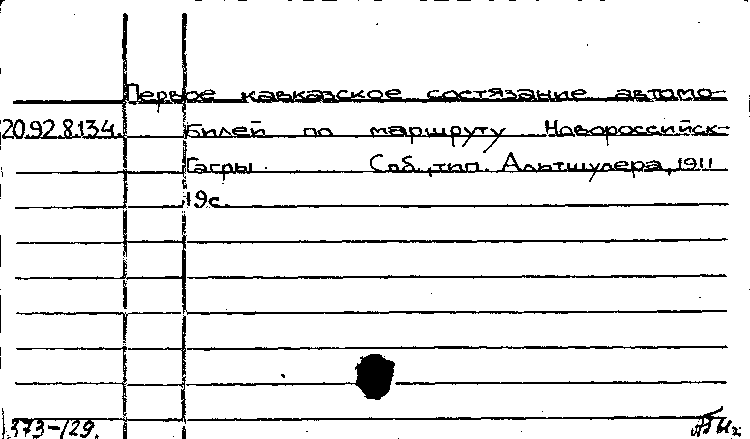 Первое кавказское состязание автомо-
20.92.8.134. билей по маршруту Новороссийск-
Гагры. Спб., тип. Альтшулера, 1911
19с.
373-129.